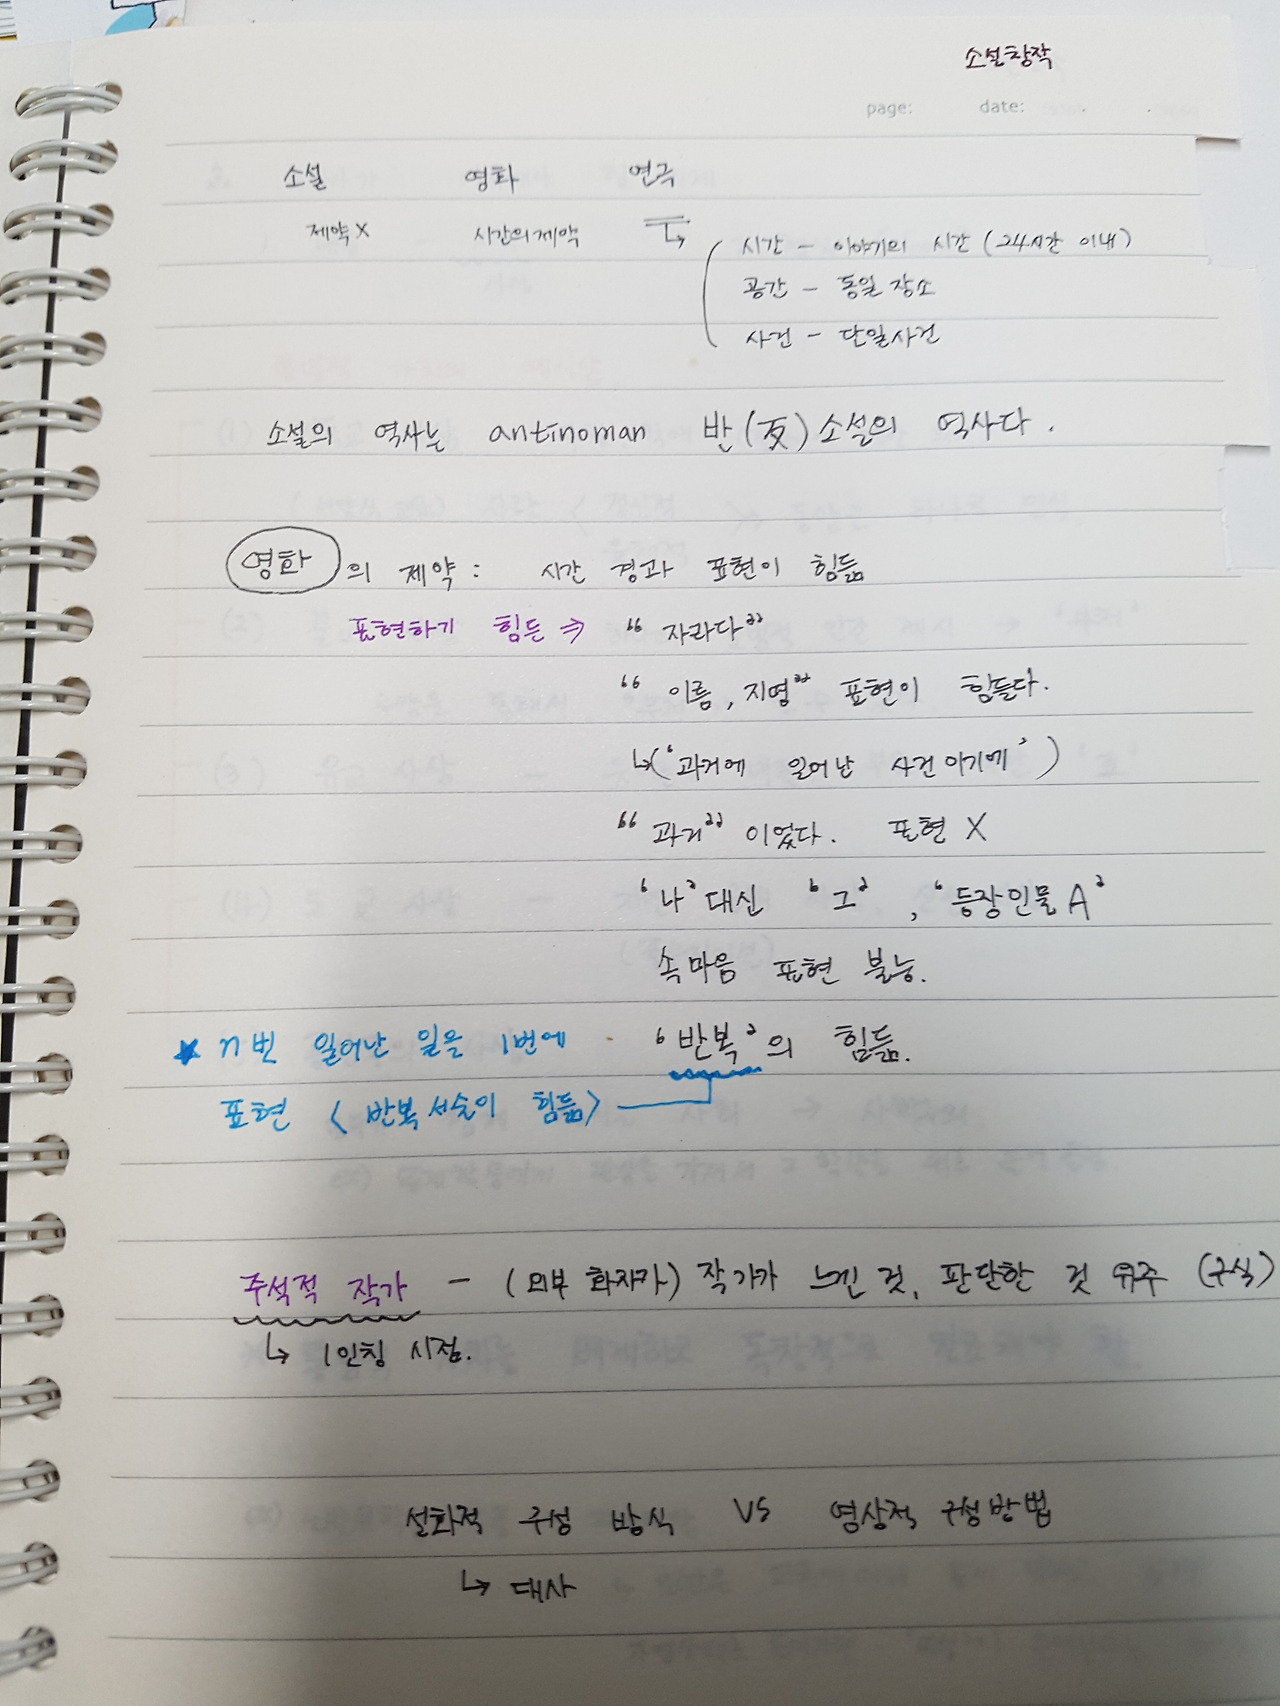 소설창작
page: date: . .
소설 영화 연극
제약X 시간의제약 ↳ 시간 - 이야기의 시간 (24시간 이내)
공간 - 동일 장소
사건 - 단일사건
소설의 역사는 antinoman 반(反)소설의 역사다.
영화의 제약: 시간 경과 표현이 힘듦
표현하기 힘든 ⇒ “자라다”
“이름, 지명” 표현이 힘들다.
↳(‘과거에 일어난 사건이기에’)
“과거”이었다. 표현 X
‘나’대신 ‘그’, ‘등장인물A’
속마음 표현 불능.
★ n번 일어난 일을 1번에 ‘반복’의 힘듦.
표현 <반복서술이 힘듦>
주석적 작가 - (외부 화자가) 작가가 느낀 것, 판단한 것 위주 (구식)
↳ 1인칭 시점.
설화적 구성 방식 VS 영상적 구성방법
↳ 대사